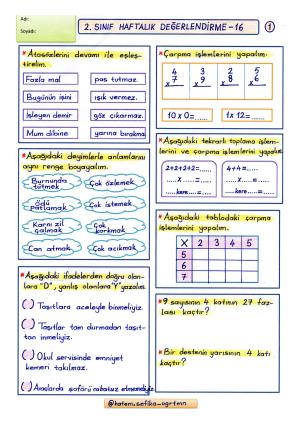 Adı:
Soyadı:
2. SINIF HAFTALIK DEĞERLENDİRME-16
1
* Atasözlerini devamı ile eşleştirelim.
Fazla mal
pas tutmaz.
Bugünün işini
ışık vermez.
İşleyen demir
göz çıkarmaz.
Mum dibine
yarına bırakma
* Aşağıdaki deyimlerle anlamlarını
aynı renge boyayalım.
Burnunda
tütmek
Çok özlemek
Ödü
patlamak
Çok istemek
Karnı zil
çalmak
Çok
korkmak
Can atmak
Çok acıkmak
* Aşağıdaki ifadelerden doğru olan-
lara "D", yanlış olanlara "Y" yazalım.
( ) Taşıtlara aceleyle binmeliyiz.
( ) Taşıtlar tam durmadan taşıt-
tan inmeliyiz.
( ) Okul servisinde emniyet
kemeri takılmaz.
( ) Araçlarda şoförü rahatsız etmemeliyiz.
* Çarpma işlemlerini yapalım.
4 3 2 5
7 9 8 6
x x x x
10 x 0=......
1x 12=......
* Aşağıdaki tekrarlı toplama işlem-
lerini ve çarpma işlemlerini yapalım.
2+2+2+2=......
....x....=......
....kere....=......
4+4=......
....x....=......
....kere....=......
* Aşağıdaki tablodaki çarpma
işlemlerini yapalım.
X 2 3 4 5
5
6
7
* 9 sayısının 4 katının 27 faz-
lası kaçtır?
* Bir destenin yarısının 4 katı
kaçtır?
@hatem_sefika_ogrtmn